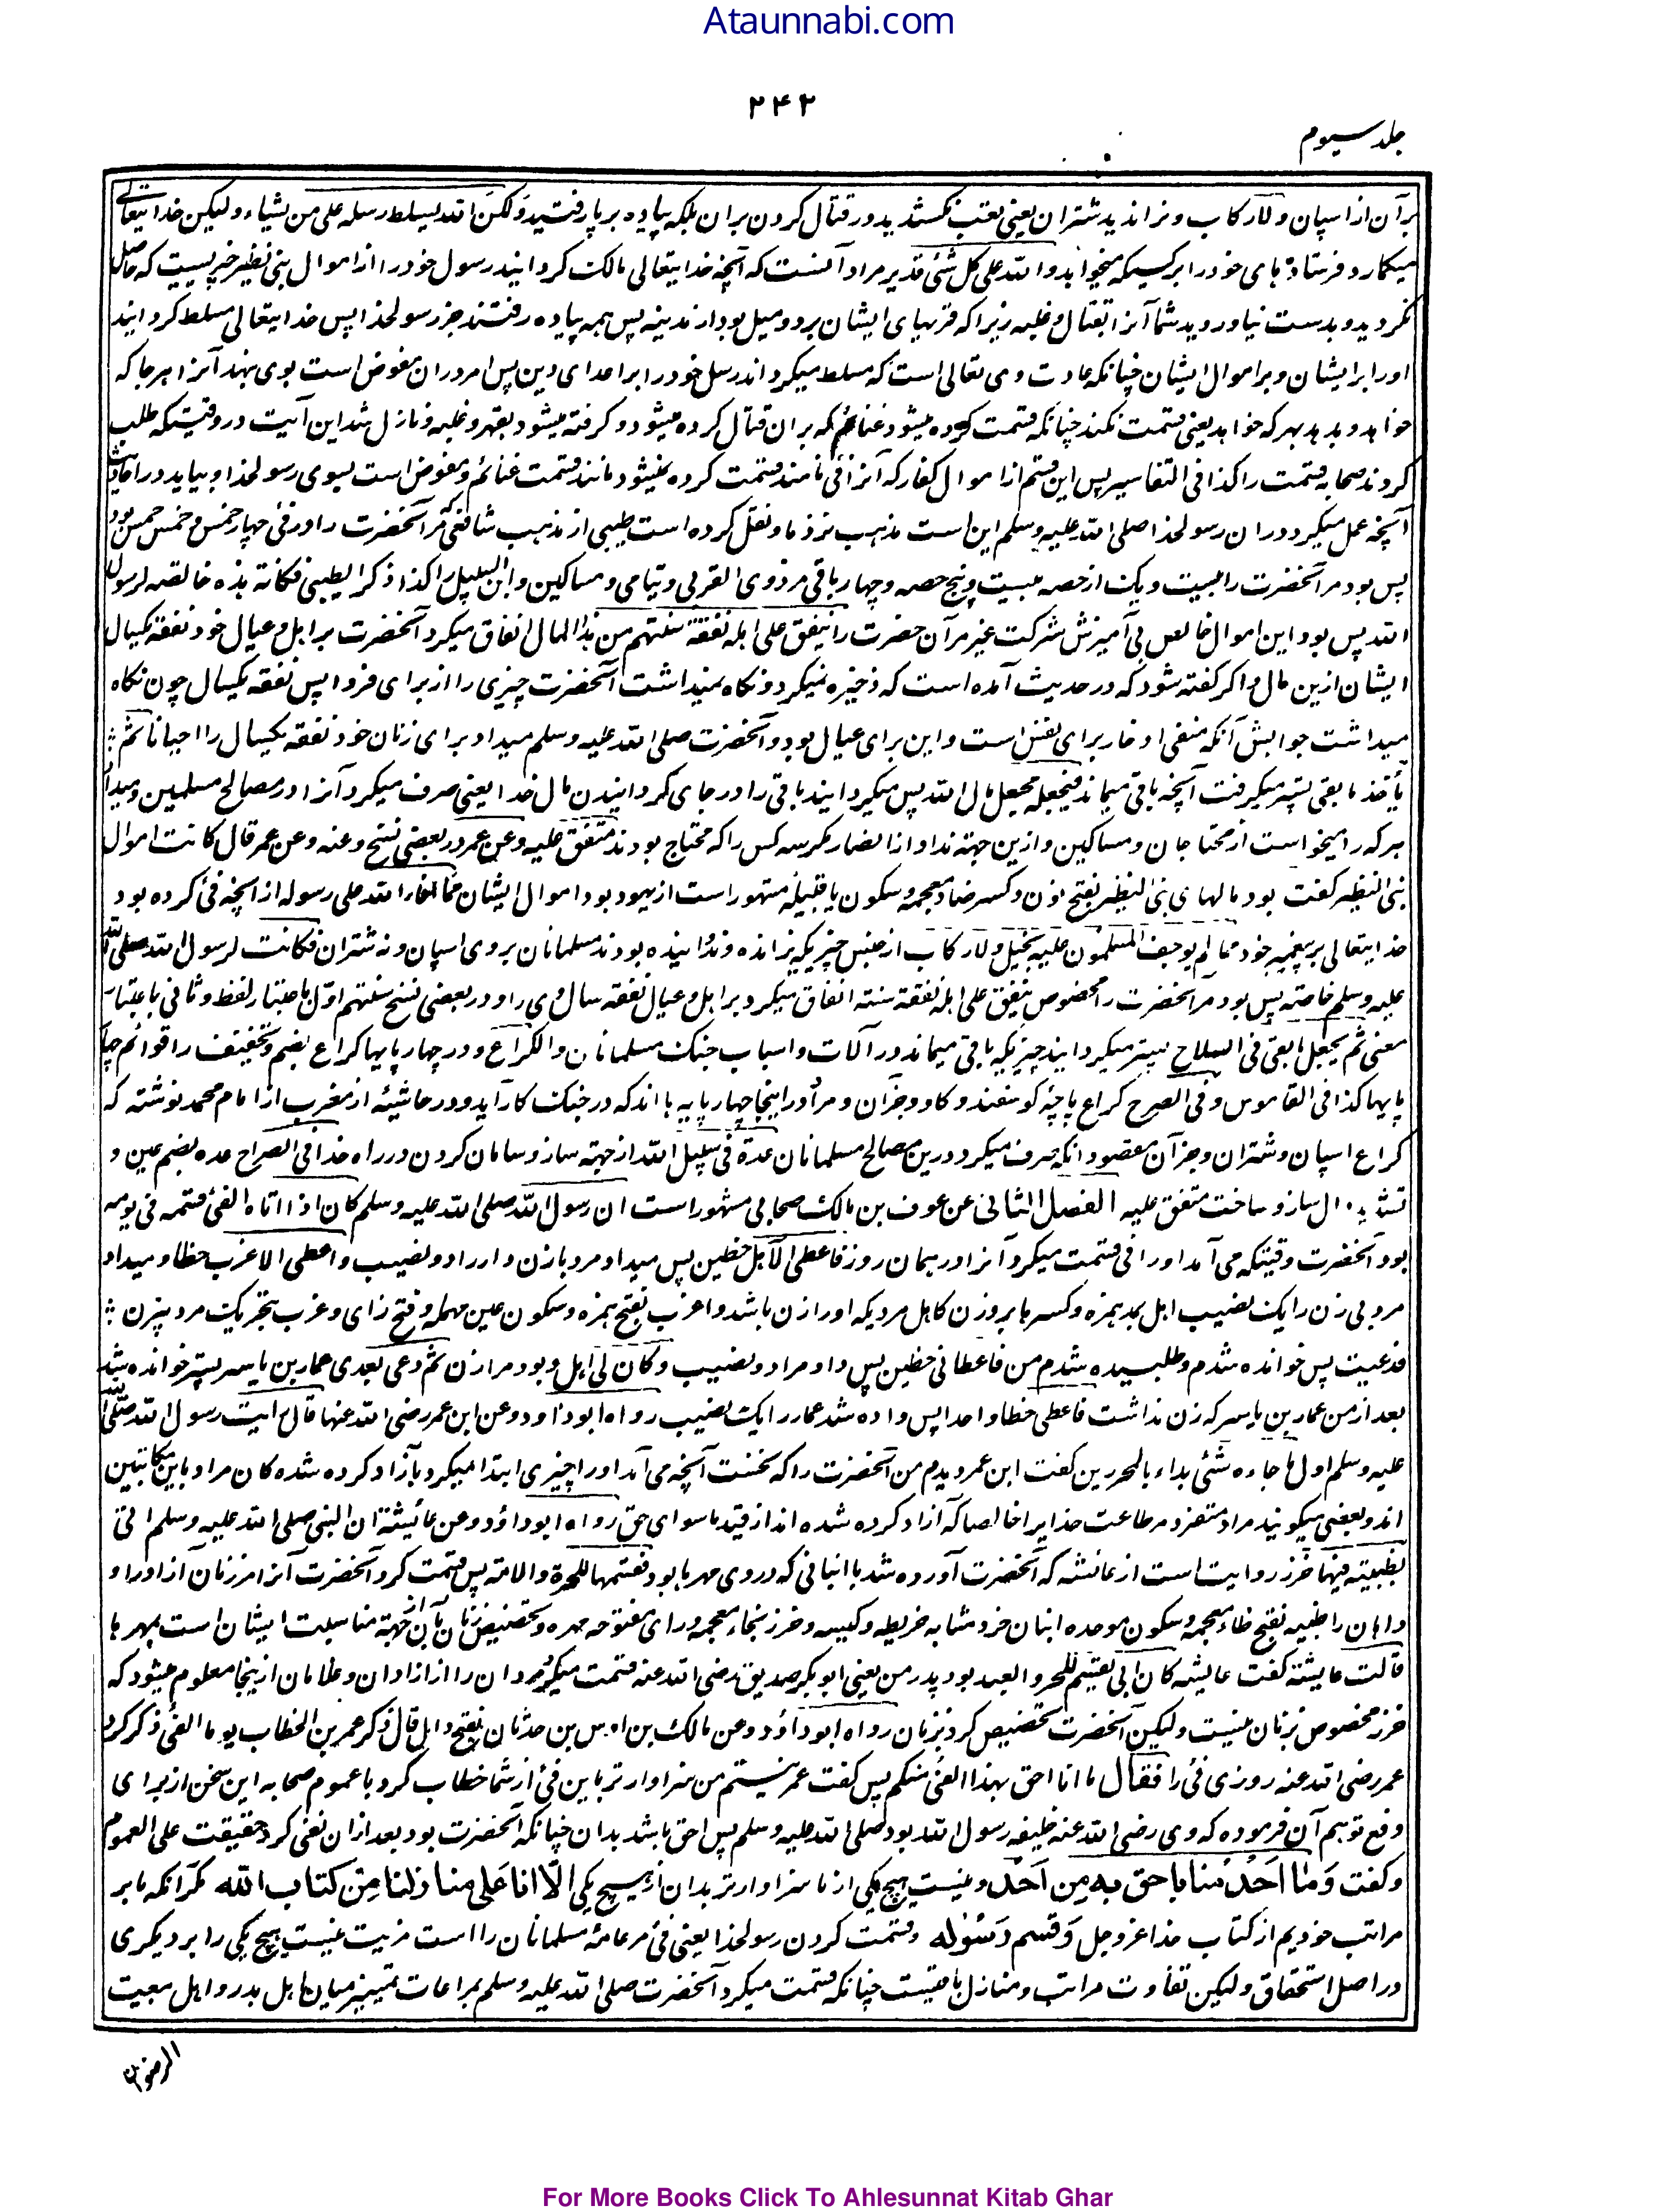 Ataunnabi.com
۲۴۲
جلد سیوم
بر آن از اسپان ولا رکاب و نراندید شتران یعنی تعب نکشیدید در قتال کردن بران بلکه پیاده بر پا رفتید ولکن الله یسلط رسله علی من یشاء و لیکن خدایتعالی
میکمارد فرستادهای خود را بر کسیکه میخواهد والله علی کل شئ قدیر مراد آنست که آنچه خدایتعالی مالک کردانید رسول خود را از اموال بنی نضیر چیریست که حاصل
نکردید و بدست نیاوردید شما آنرا بقتال و غلبه زیرا که قریهای ایشان بر دو میل بود از مدینه پس همه پیاده رفتند جز رسولخدا پس خدایتعالی مسلط کردانید
او را بر ایشان و بر اموال ایشان چنانکه عادت وی تعالی است که مسلط میکرداند رسل خود را بر اعدای دین پس امر دران مفوض است بوی بنهد آنرا هر جا که
خواهد و بدهد بهر که خواهد یعنی قسمت نکند چنانکه قسمت کرده میشود غنائم که بران قتال کرده میشود و کرفته میشود بقهر و غلبه و نازل شد این آیت در وقتیکه طلب
کردند صحابه قسمت را کذا فی التفاسیر پس این قسم از اموال کفار که آنرا فئ نامند قسمت کرده نمیشود مانند قسمت غنائم و مفوض است بسوی رسولخدا و بیاید در احادیث
آنچه عمل میکرد دران رسولخدا صلی الله علیه وسلم این است مذهب نزد ما و نقل کرده است طیبی از مذهب شافعی که مر آنحضرت را در فئ چهار خمس و خمس خمس بود
پس بود مر آنحضرت را بیست و یک از حصه بیست و پنج حصه و چهار باقی مر ذوی القربی و یتامی و مساکین و ابن السبیل را کذا ذکر الطیبی فکانة هذه خالصه لرسول
الله پس بود این اموال خالص بی آمیزش شرکت غیر مر آن حضرت را ینفق علی اهله نفقة سنتهم من هذا المال انفاق میکرد آنحضرت بر اهل و عیال خود نفقه یکسال
ایشان ازین مال و اکر کفته شود که در حدیث آمده است که ذخیره نمیکرد و نکاه نمیداشت آنحضرت چیزی را از برای فردا پس نفقه یکسال چون نکاه
میداشت جوابش آنکه منفی ادخار برای نفس است و این برای عیال بود و آنحضرت صلی الله علیه وسلم میداد برای زنان خود نفقه یکسال را احیانا ثم
یأخذ ما بقی پستر میکرفت آنچه باقی میماند فیجعله مجعل مال الله پس میکردانید باقی را در جای کردانیدن مال خدا یعنی صرف میکرد آنرا در مصالح مسلمین و میداد
هر که را میخواست از محتاجان و مساکین و ازین جهته نداد از انصار مکر سه کس را که محتاج بودند متفق علیه وعن عمر در بعضی نسخ وعنه وعن عمر قال کانت اموال
بنی النضیر کفت بود مالهای بنی النضیر بفتح نون و کسر ضاد معجمه و سکون یا قبیله مشهور است از یهود بود اموال ایشان مما افاء الله علی رسوله از آنچه فئ کرده بود
خدایتعالی بر پیغمبر خود مما لم یوجف المسلمون علیه بخیل ولا رکاب از جنس چیزیکه نرانده و ندوانیده بودند مسلمانان بر وی اسپان و نه شتران فکانت لرسول الله صلی الله
علیه وسلم خاصته پس بود مر آنحضرت را مخصوص ینفق علی اهله نفقة سنته انفاق میکرد بر اهل و عیال نفقه سال وی را و در بعضی نسخ سنتهم اول باعتبار لفظ و ثانی باعتبار
معنی ثم یجعل ما بقی فی السلاح پستر میکردانید چیزیکه باقی میماند در آلات و اسباب جنک مسلمانان والکراع و در چهارپایها کراع بضم و تخفیف را قوائم چهار
پایها کذا فی القاموس و فی الصرح کراع پاچهٔ کوسفند و کاو و جز آن و مراد در اینجا چهارپایه ها اند که در جنک کار آید و در حاشیهٔ از مغرب از امام محمد نوشته که
کراع اسپان و شتران و جز آن مقصود آنکه صرف میکرد درین مصالح مسلمانان عدة فی سبیل الله از جهته ساز و سامان کردن در راه خدا فی الصراح عده بضم عین و
تشدید دال ساز و ساخت متفق علیه الفصل الثانی عن عوف بن مالک صحابی مشهور است ان رسول الله صلی الله علیه وسلم کان اذا اتاه الفئ قسمه فی یومه
بود آنحضرت وقتیکه می آمد او را فئ قسمت میکرد آنرا در همان روز فاعطی الآهل حظین پس میداد مرد با زن دار را دو نصیب واعطی الاعزب حظا و میداد
مرد بی زن را یک نصیب اهل بمد همزه و کسر ها بر وزن کاهل مردیکه او را زن باشد و اعزب بفتح همزه و سکون عین مهمله و فتح زای و عزب بتحریک مرد بیزن
فدعیت پس خوانده شدم و طلبیده شدم من فاعطانی حظین پس داد مرا دو نصیب وکان لی اهل و بود مرا زن ثم دعی بعدی عمار بن یاسر پستر خوانده شد
بعد از من عمار بن یاسر که زن نداشت فاعطی حظا واحدا پس داده شد عمار را یک نصیب رواه ابوداود وعن ابن عمر رضی الله عنهما قال رایت رسول الله صلی الله
علیه وسلم اول ما جاءه شئی بداء بالمحررین کفت ابن عمر دیدم من آنحضرت را که نخست آنچه می آمد او را چیزی ابتدا میکرد بآزاد کرده شده کان مراد باین مکاتبین
اند و بعضی میکویند مراد متفرد مر طاعت خدایرا خالصا که آزاد کرده شده اند از قید ماسوای حق رواه ابوداؤد وعن عائیشة ان النبی صلی الله علیه وسلم اتی
بظبیة فیها خرز روایت است از عائشه که آنحضرت آورده شد با انبانی که در وی مهرها بود فقسمها للحرة والامة پس قسمت کرد آنحضرت آنرا مر زنان آزاد را و
داهان را ظبیه بفتح ظاء معجمه و سکون موحده انبان خرد مشابه خریطه و کیسه و خرز بخاء معجمه و رای مفتوحه مهره و تخصیص زنان بآن از جهته مناسبت ایشان است بمهرها
قالت عایشة کفت عایشه کان ابی یقسم للحر والعبد بود پدر من یعنی ابوبکر صدیق رضی الله عنه قسمت میکرد مردان را از ازادان و غلامان ازینجا معلوم میشود که
خرز مخصوص بزنان نیست و لیکن آنحضرت تخصیص کرد بزنان رواه ابوداؤد وعن مالک بن اوس بن حدثان بفتح دال قال ذکر عمر بن الخطاب یوما الفئ ذکر کرد
عمر رضی الله عنه روزی فئ را فقال ما انا احق بهذا الفئ منکم پس کفت عمر نیستم من سزاوارتر باین فئ از شما خطاب کرد با عموم صحابه این سخن از برای
دفع توهم آن فرموده که وی رضی الله عنه خلیفه رسول الله بود صلی الله علیه وسلم پس احق باشد بدان چنانکه آنحضرت بود بعد ازان نفی کرد حقیقت علی العموم
و کفت وَمَا اَحَدٌ مِّنا باحق به من اَحَد و نیست هیچ یکی از ما سزاوارتر بدان از هیچ یکی الّا انا عَلی منازلنا مِن کتاب الله مکر آنکه ما بر
مراتب خودیم از کتاب خدا عز و جل وَقسم رَسُوله و قسمت کردن رسولخدا یعنی فئ مر عامهٔ مسلمانان را است مزیت نیست هیچ یکی را بر دیکری
در اصل استحقاق و لیکن تفاوت مراتب و منازل باقیست چنانکه قسمت میکرد آنحضرت صلی الله علیه وسلم بمراعات تمییز میان اهل بدر و اهل بیعت
الرضوان
For More Books Click To Ahlesunnat Kitab Ghar